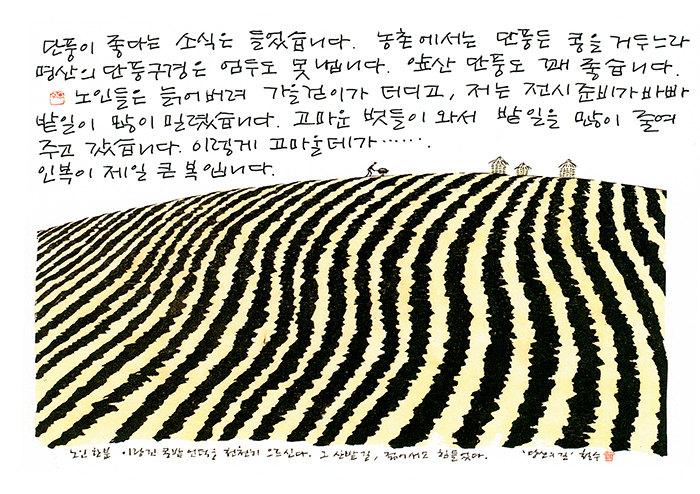 단풍이 좋다는 소식은 들었습니다. 농촌에서는 단풍든 콩을 거두느라
명산의 단풍구경은 엄두도 못 냅니다. 앞산 단풍도 꽤 좋습니다.
노인들은 늙어버려 가을걷이가 더디고, 저는 전시준비가 바빠
밭일이 많이 밀렸습니다. 고마운 벗들이 와서 밭일을 많이 줄여
주고 갔습니다. 이렇게 고마울데가…….
인복이 제일 큰 복입니다.
노인 한분 이랑긴 콩밭 언덕을 천천히 오르신다. 그 산밭길, 젊어서도 힘들었다. '당신의 길' 철수